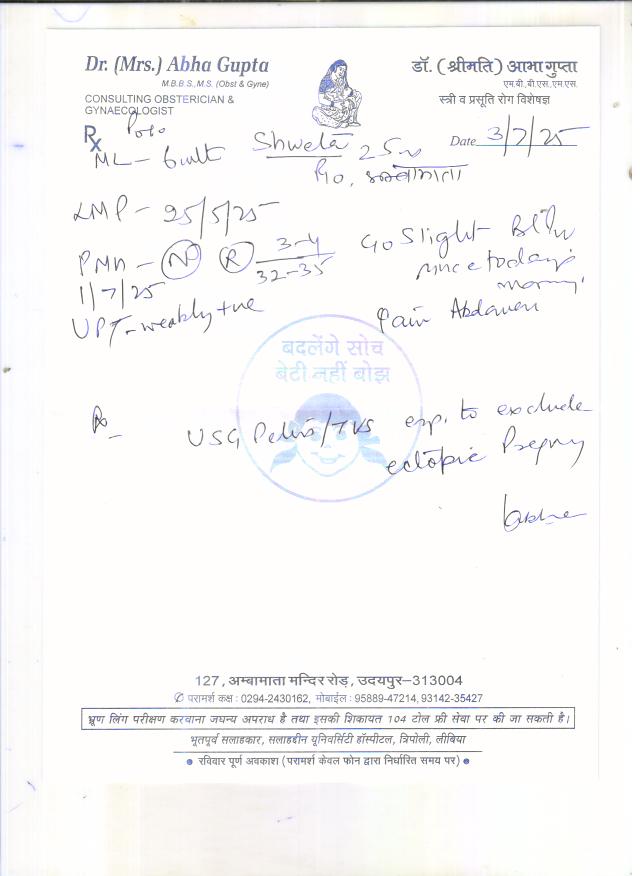 Dr. (Mrs.) Abha Gupta
M.B.B.S., M.S. (Obst & Gyne)
CONSULTING OBSTERICIAN &
GYNAECOLOGIST
डॉ. (श्रीमति) आभा गुप्ता
एम.बी.,बी.एस.,एम.एस.
स्त्री व प्रसूति रोग विशेषज्ञ
Rx PoIo
ML - 6 unit Shweta 25 Date 3/7/25
R/o,
LMP - 25/5/25
PMH - N R 3-4 / 32-35 C/o Slight
since today's
1/7/25 morning
UPT - weakly +ve Pain Abdomen
बदलेंगे सोच
बेटी नहीं बोझ
Rx USG Pelvis/TVS esp. to exclude
ectopic Pregny
127, अम्बामाता मन्दिर रोड़, उदयपुर–313004
✆ परामर्श कक्ष : 0294-2430162, मोबाईल : 95889-47214, 93142-35427
भ्रूण लिंग परीक्षण करवाना जघन्य अपराध है तथा इसकी शिकायत 104 टोल फ्री सेवा पर की जा सकती है।
भूतपूर्व सलाहकार, सलाहद्दीन यूनिवर्सिटी हॉस्पीटल, त्रिपोली, लीबिया
● रविवार पूर्ण अवकाश (परामर्श केवल फोन द्वारा निर्धारित समय पर) ●